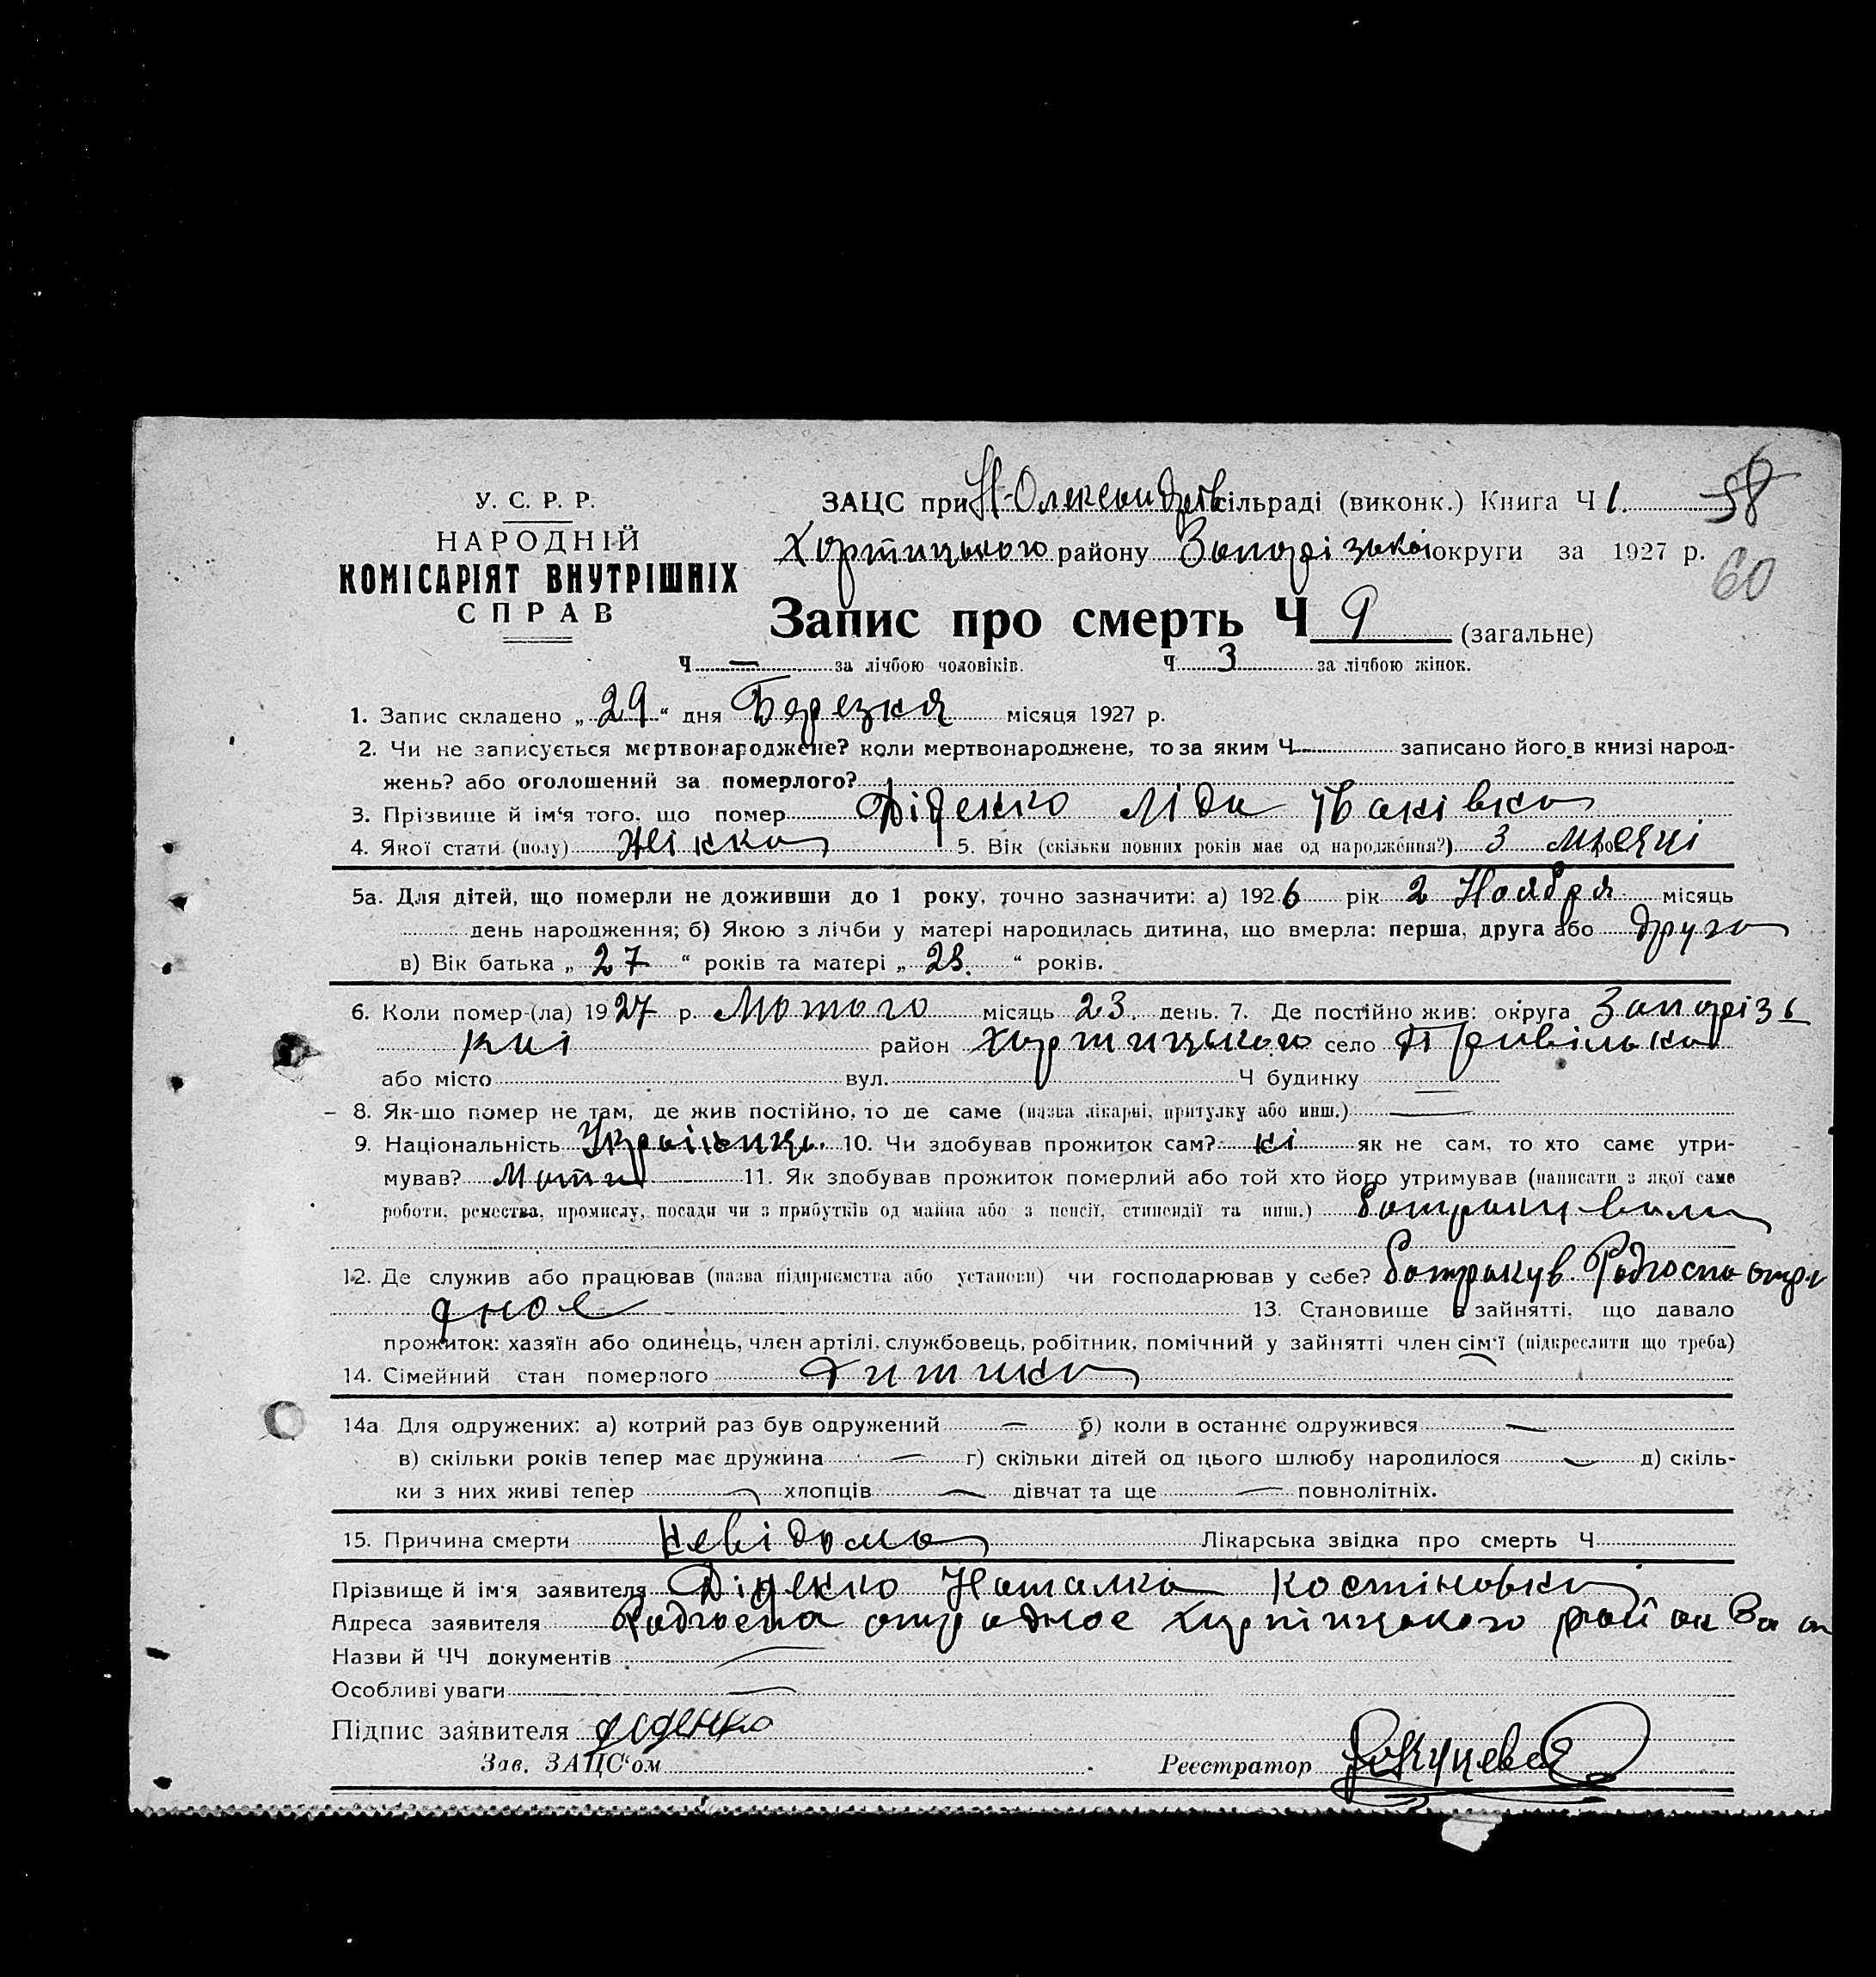 У. С. Р. Р.
НАРОДНІЙ
КОМІСАРІЯТ ВНУТРІШНІХ
СПРАВ
ЗАЦС при Н-Олександрів сільраді (виконк.) Книга Ч 1. 58
Хортицького району Запорізької округи за 1927 р.
60
Запис про смерть Ч 9 (загальне)
Ч — за лічбою чоловіків. Ч 3 за лічбою жінок.
1. Запис складено „ 29 “ дня Березня місяця 1927 р.
2. Чи не записується мертвонароджене? коли мертвонароджене, то за яким Ч записано його в книзі народ-
жень? або оголошений за померлого?
3. Прізвище й ім'я того, що помер Діденко Ліда Іванівна
4. Якої стати (полу) Жінка 5. Вік (скільки повних років має од народження?) 3 місяці
5а. Для дітей, що померли не доживши до 1 року, точно зазначити: а) 1926 рік 2 Ноября місяць
день народження; б) Якою з лічби у матері народилась дитина, що вмерла: перша, друга або друга
в) Вік батька „ 27 “ років та матері „ 23. “ років.
6. Коли помер-(ла) 1927 р. Лютого місяць 23 день. 7. Де постійно жив: округа Запорізь
киї район Хортицького село Привільна
або місто вул. Ч будинку —
8. Як-що помер не там, де жив постійно, то де саме (назва лікарні, притулку або инш.) —
9. Національність Українць. 10. Чи здобував прожиток сам? ні як не сам, то хто саме утри-
мував? Мати 11. Як здобував прожиток померлий або той хто його утримував (написати з якої саме
роботи, ремества, промислу, посади чи з прибутків од майна або з пенсії, стипендії та инш.) батракувала
12. Де служив або працював (назва підприємства або установи) чи господарював у себе? батракув. Радгоспа отра
дное 13. Становище в зайнятті, що давало
прожиток: хазяїн або одинець, член артілі, службовець, робітник, помічний у зайнятті член сім'ї (підкреслити що треба)
14. Сімейний стан померлого дитина
14а Для одружених: а) котрий раз був одружений — б) коли в останнє одружився —
в) скільки років тепер має дружина — г) скільки дітей од цього шлюбу народилося — д) скіль-
ки з них живі тепер — хлопців — дівчат та ще — повнолітніх.
15. Причина смерти невідома Лікарська звідка про смерть Ч
Прізвище й ім'я заявителя Діденко Наталка Костіновна
Адреса заявителя Радгоспа отрадное Хортицького район
Назви й ЧЧ документів —
Особливі уваги —
Підпис заявителя діденко
Зав. ЗАЦС'ом Реєстратор